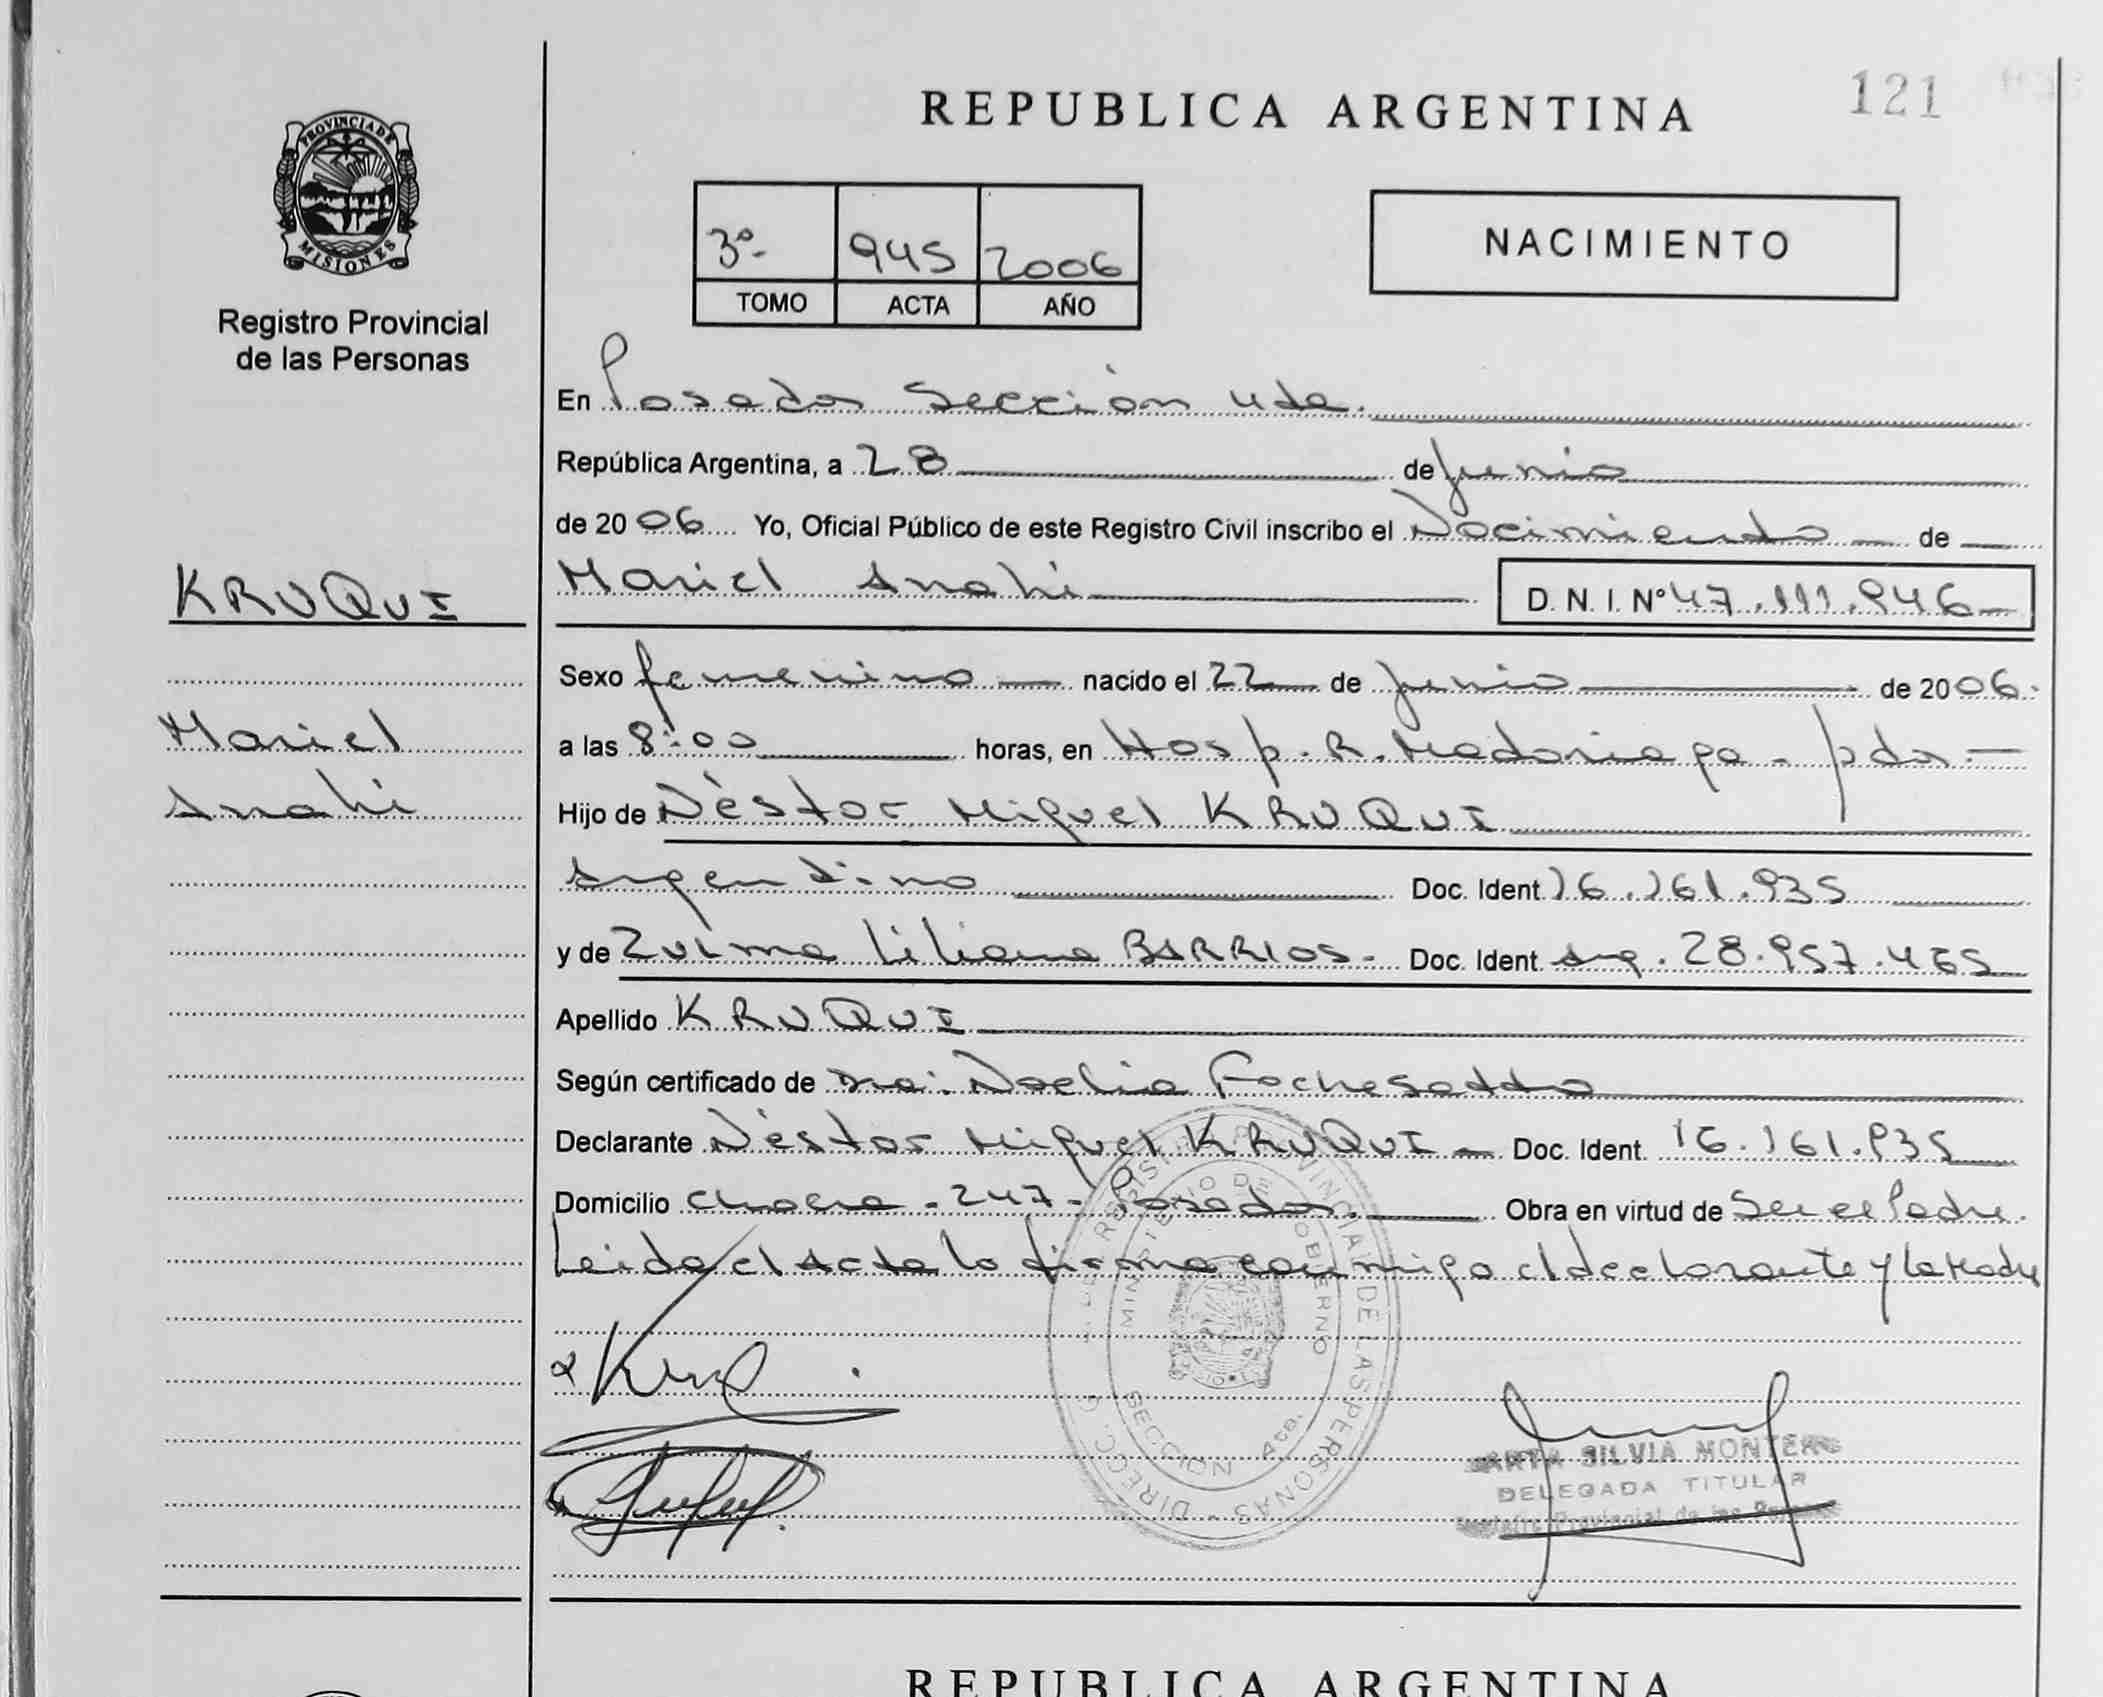 REPUBLICA ARGENTINA
121
PROVINCIA DE
MISIONES
Registro Provincial
de las Personas
3º- 945 2006
TOMO ACTA AÑO
NACIMIENTO
En Posadas Sección 4ta.
República Argentina, a 28 de junio
de 2006 Yo, Oficial Público de este Registro Civil inscribo el Nacimiento de
KRUQUI
Mariel Anahi D. N. I. Nº 47.111.946
Sexo femenino nacido el 22 de junio de 2006.
Mariel
a las 8:00 horas, en Hosp. R. Madariaga - pdas.
Anahi
Hijo de Nèstor Miguel KRUQUI
Argentino Doc. Ident 16.161.935
y de Zulma Liliana BARRIOS.- Doc. Ident Arg. 28.957.465
Apellido KRUQUI
Según certificado de Dra. Noelia Fochesatto
Declarante Nèstor Miguel KRUQUI Doc. Ident. 16.161.935
Domicilio chacra - 247 - Posadas. Obra en virtud de Ser el Padre.
Leida el Acta lo firma conmigo el declarante y la Madre
DIRECC. G. DEL REGISTRO PROVINCIAL DE LAS PERSONAS
MINISTERIO DE GOBIERNO
SECCION 4ta.
ARTA SILVIA MONTERO
DELEGADA TITULAR
Provincial de las
REPUBLICA ARGENTINA